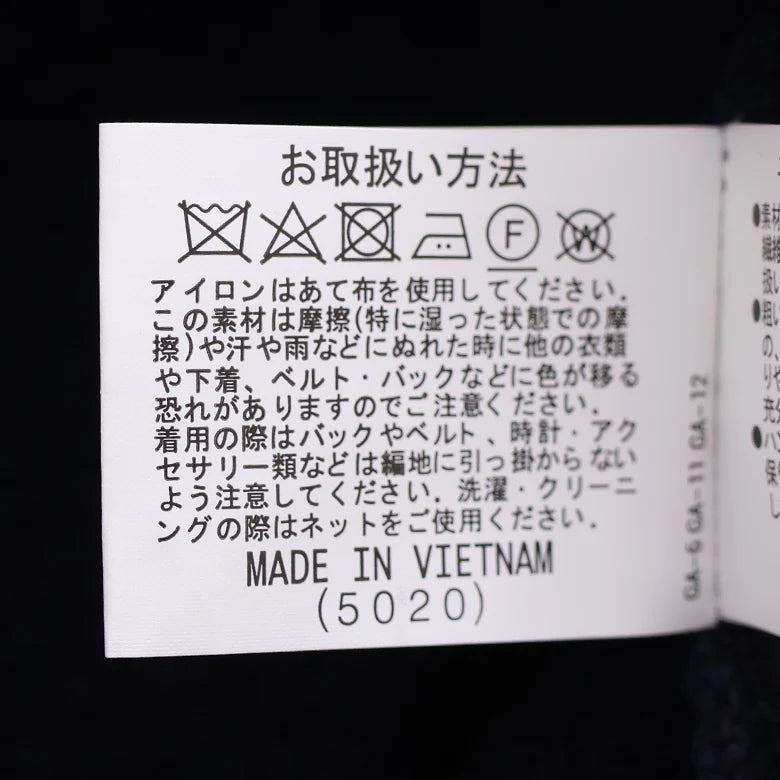 お取扱い方法
F W
アイロンはあて布を使用してください.
この素材は摩擦(特に湿った状態での摩
擦)や汗や雨などにぬれた時に他の衣類
や下着、ベルト・バックなどに色が移る
恐れがありますのでご注意ください.
着用の際はバックやベルト、時計・アク
セサリー類などは編地に引っ掛からない
よう注意してください.洗濯・クリーニ
ングの際はネットをご使用ください.
MADE IN VIETNAM
(5020)
GA-6 GA-11 GA-12
●素材
繊維
扱い
●粗い
の、
りや
充分
●ハン
保
し